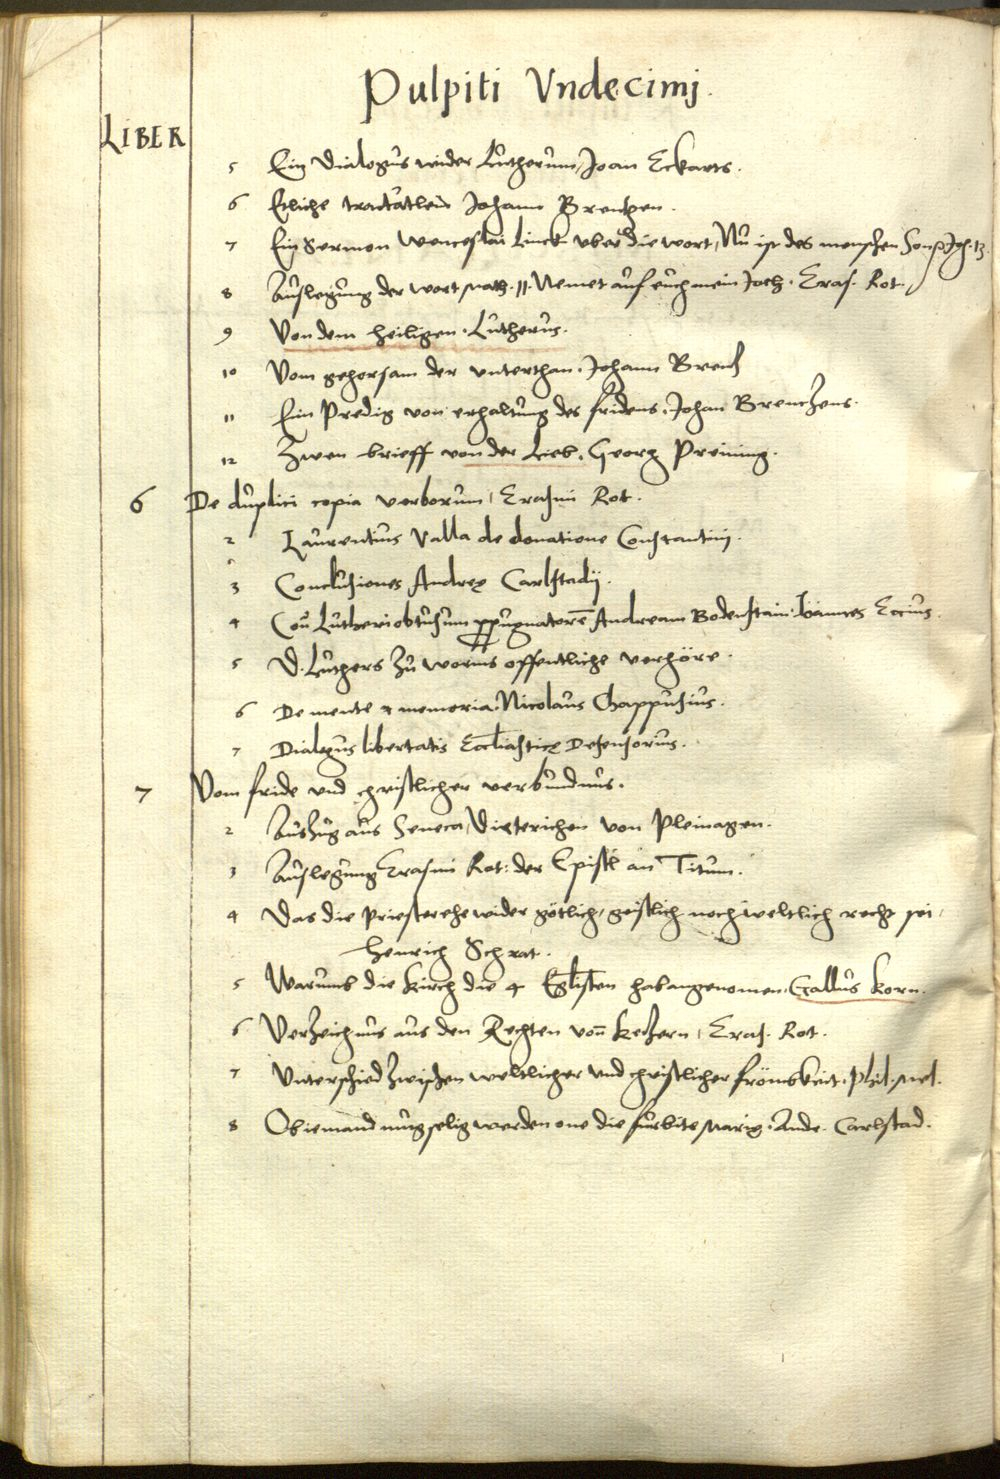 Pulpiti Vndecimj.
LIBER
5 Ein Dialogus wider Lutherum, Joan Eckarts.
6 Etliche tractatlein Johann Brentzen.
7 Ein Sermon Wenceslai Linck vber die wort, Nu ist des menschen Son Joh. 13.
8 Auslegung der wort Math. 11. Nemet auf euch mein Joch. Eras. Rot.
9 Von dem heiligen. Lutherus.
10 Vom gehorsam der unterthan. Johann Brentz
11 Ein Predig von erhaltung des fridens. Johan Brenczens.
12 Zwen brieff von der Lieb. Georg Preining.
6 De duplici copia verborum, Erasmi Rot.
2 Laurentius Valla de donatione Constantini.
3 Conclusiones Andreę Carlstadij.
4 Coñ Lutheri obtusum ꝓpugnatorē Andream Bodenstain Ioannes Eccius.
5 D. Luthers zu worms offentliche verhöre.
6 De mente & memoria. Nicolaus Chappusius.
7 Dialogus libertatis Eccl̄iasticę Defensorius.
7 Vom fride vnd christlicher verbundnus.
2 Auszug aus Seneca, Dieterichen von Pleinagen.
3 Auslegung Erasmi Rot: der Epistl an Titum.
4 Das die priesterehe wider götlich, geistlich noch weltlich recht sei,
Henrich Schrat.
5 Warumb die kirch die 4 Eglisten hab angenomen. Gallus Korn.
6 Verzeichnus aus den Rechten von keczern, Eras. Rot.
7 Unterschied zwischen weltlicher vnd christlicher frömbkeit. Phil. Mel.
8 Ob iemand mug selig werden one die furbite Marię. Ande. Carlstad.